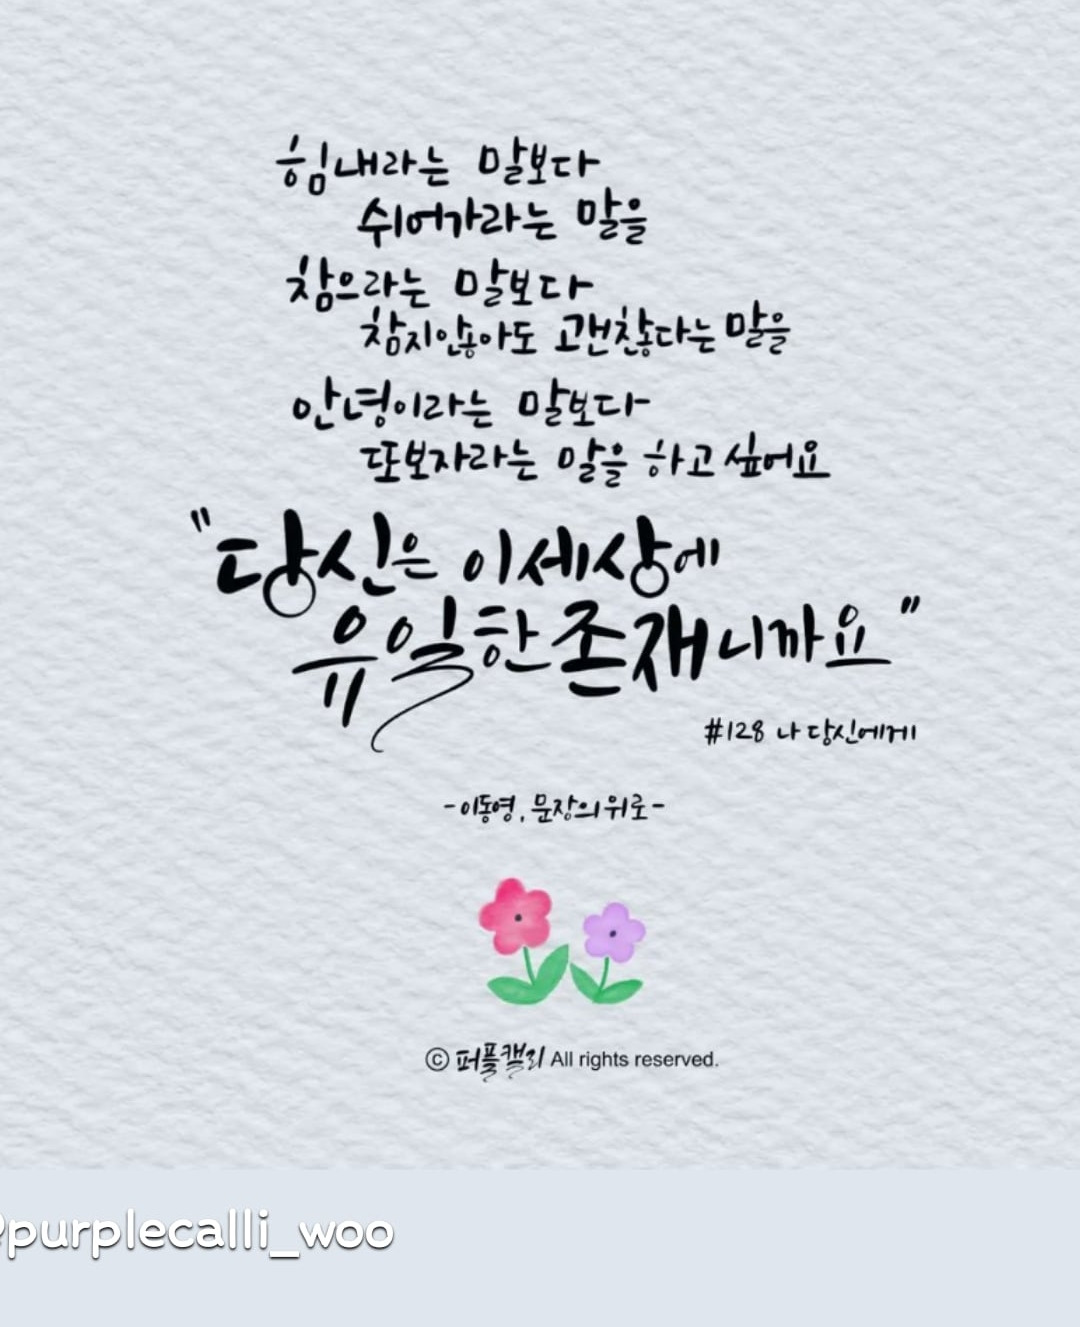 힘내라는 말보다
쉬어가라는 말을
참으라는 말보다
참지않아도 괜찮다는 말을
안녕이라는 말보다
또보자라는 말을 하고 싶어요
"당신은 이세상에
유일한 존재니까요"
#128 나 당신에게
-이동영, 문장의위로-
ⓒ 퍼플캘리 All rights reserved.
@purplecalli_woo